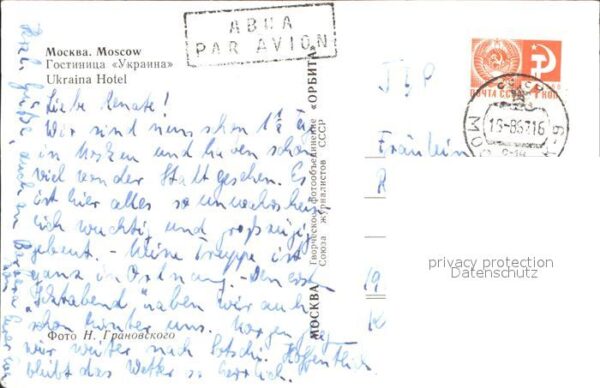 АВИА
PAR AVION
Москва. Moscow
Гостиница «Украина»
Ukraina Hotel
ПОЧТА СССР
Liebe Renate!
Wir sind nun schon 1½
in und haben schon
viel von der Stadt gesehen. Es
ist hier alles so unwahrschein
lich wuchtig und großzügig
gebaut. - Meine Truppe ist
ganz in Ordnung. - Den ersten
"abend" haben wir auch
schon hinter uns. Morgen geht
wir weiter nach Sotschi. Hoffentlich
bleibt das Wetter so herrlich.
Herzl. Grüße, auch an Barbara
Фото Н. Грановского
МОСКВА
Творческое фотообъединение «ОРБИТА»
Союза журналистов СССР
Fräulein
R
19
privacy protection
Datenschutz